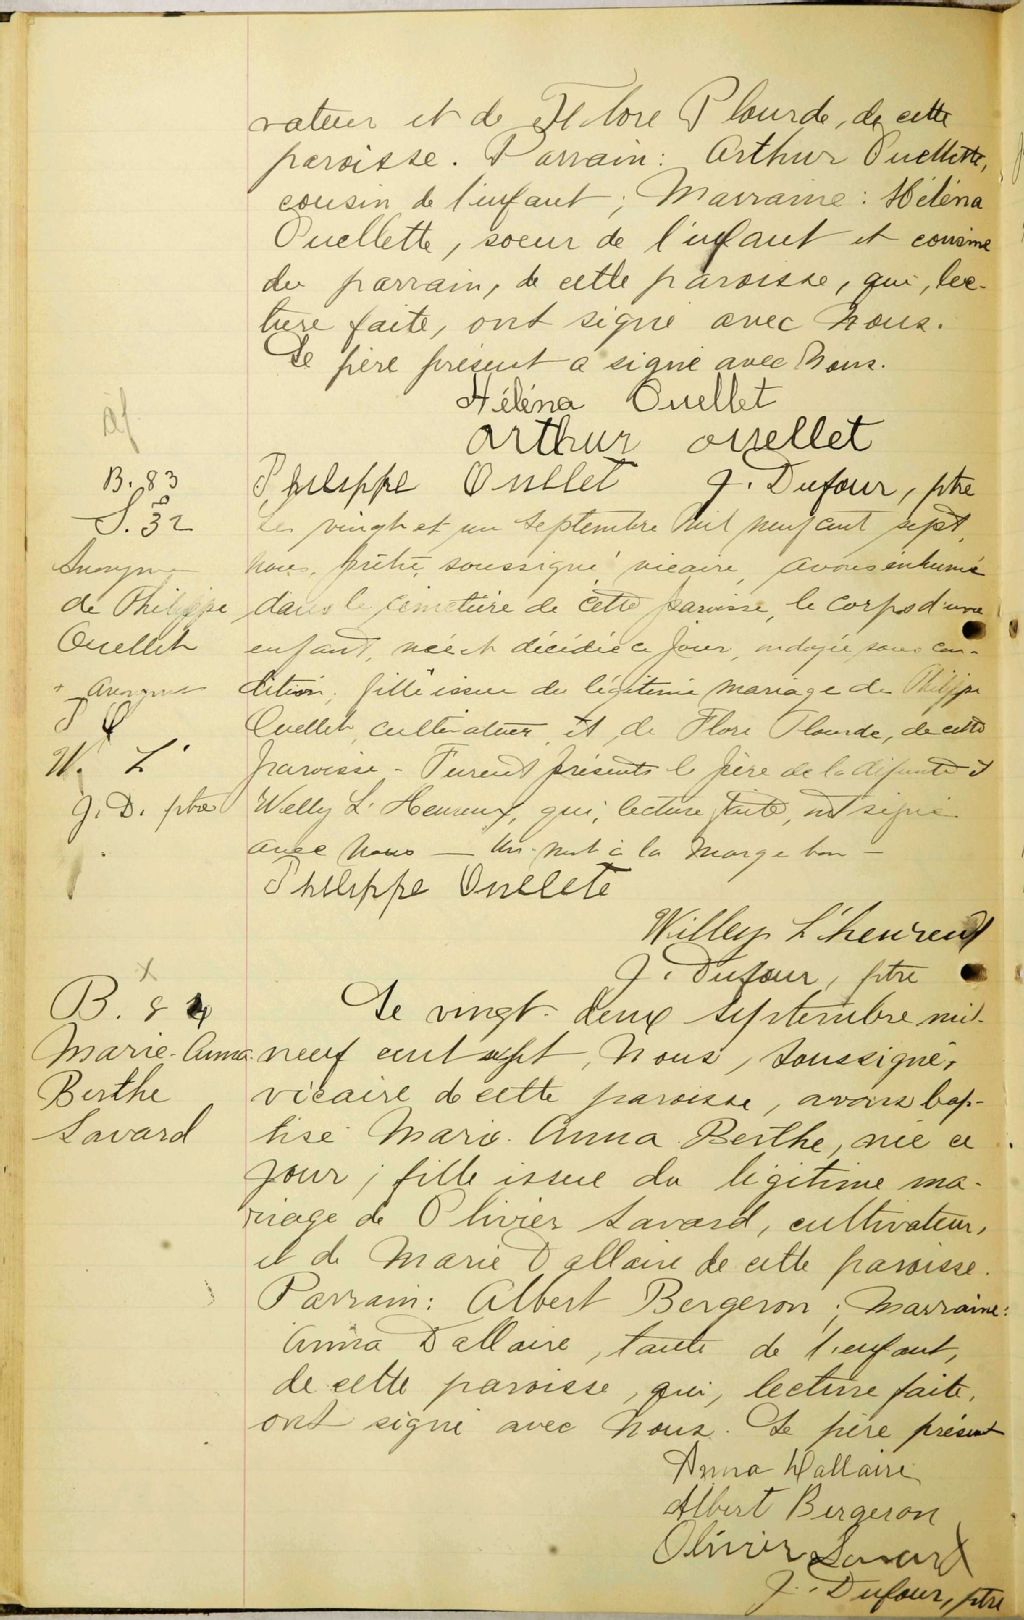 vateur et de Flore Plourde, de cette
paroisse. Parrain: Arthur Ouellette,
cousin de l'enfant; Marraine: Héléna
Ouellette, soeur de l'enfant et cousine
du parrain, de cette paroisse, qui, lec-
ture faite, ont signé avec Nous.
Le père présent a signé avec Nous.
Héléna Ouellet
Arthur ouellet
B. 83
Philippe Ouellet J. Dufour, ptre
S. 32
Le vingt et un Septembre mil neuf cent sept,
Anonyme
nous, prêtre, soussigné vicaire, avons inhumé
de Philippe
dans le cimetière de cette paroisse, le corps d'une
Ouellet
enfant, née et décédée ce jour, ondoyée sous con-
+ anonyme
dition, fille issue du légitime mariage de Philippe
P O
Ouellet, cultivateur, et de Flore Plourde, de cette
W. L'
paroisse - Furent présents le père de la défunte et
J. D. ptre
Welly L'Heureux, qui, lecture faite, ont signé
avec Nous — Un mot à la marge bon —
Philippe Ouellete
Willey L'heureux
J. Dufour, ptre
B. 84
Le vingt-deux septembre mil-
Marie-Anna
neuf cent sept, Nous, soussigné,
Berthe
vicaire de cette paroisse, avons bap-
Savard
tisé Marie-Anna Berthe, née ce
jour, fille issue du légitime ma-
riage de Olivier Savard, cultivateur,
et de Marie Dallaire de cette paroisse.
Parrain: Albert Bergeron; Marraine:
Anna Dallaire, tante de l'enfant,
de cette paroisse, qui, lecture faite,
ont signé avec Nous. Le père présent
Anna Dallaire
Albert Bergeron
Olivier Savard
J. Dufour, ptre